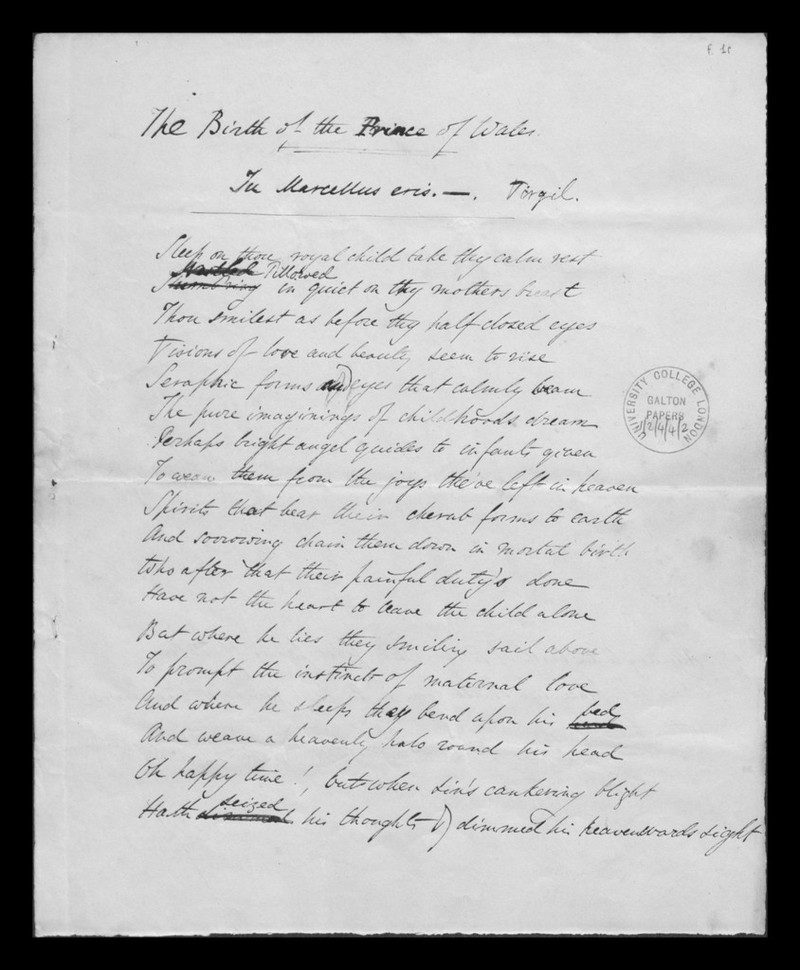 f. 1r
The Birth of the Prince of Wales.
Tu Marcellus eris. —. Virgil.
Sleep on thou royal child take thy calm rest
Pillowed
Slumb'ring in quiet on thy mothers breast
Thou smilest as before thy half closed eyes
Visions of love and beauty seem to rise
Seraphic forms and) eyes that calmly beam
The pure imaginings of childhoods dream
Perhaps bright angel guides to infants given
To wean them from the joys the've left in heaven
Spirits that bear their cherub forms to earth
And sorrowing chain them down in mortal birth
Who after that their painful duty's done
Have not the heart to leave the child alone
But where he lies they smiling sail above
To prompt the instincts of maternal love
And where he sleeps they bend upon his bed
And weave a heavenly halo round his head
Oh happy time!, but when sin's cankering blight
seized
Hath his thoughts &) dimmed his heavenwards sight
UNIVERSITY COLLEGE LONDON
GALTON
PAPERS
1/2/4/4/2